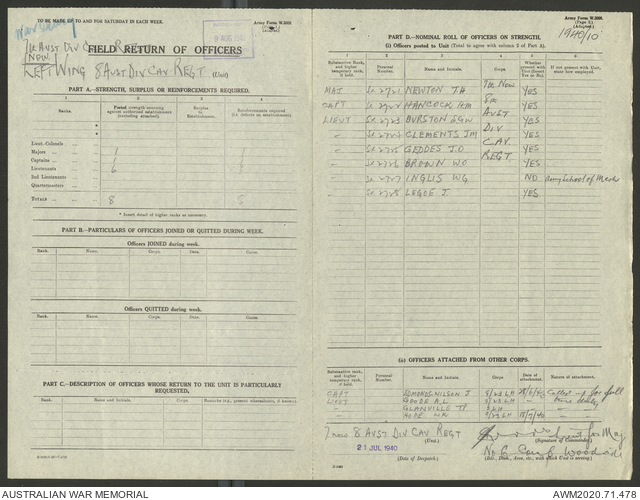 TO BE MADE UP TO AND FOR SATURDAY IN EACH WEEK.
Army Form W.3008.
(Adapted.)
7th AUST DIV CAV REGT
NOW
FIELD RETURN OF OFFICERS
LEFT WING 8 AUST DIV CAV REGT (Unit)
PART A.—STRENGTH, SURPLUS OR REINFORCEMENTS REQUIRED.
1 2 3 4
Ranks. Posted strength Surplus to Establishment. Reinforcements required
Lieut.-Colonels
Majors 1
Captains 1
Lieutenants 6
2nd Lieutenants
Quartermasters
TOTALS 8
* Insert detail of higher ranks as necessary.
PART B.—PARTICULARS OF OFFICERS JOINED OR QUITTED DURING WEEK.
Officers JOINED during week.
Rank. Name. Corps. Date. Cause.
Officers QUITTED during week.
Rank. Name. Corps. Date. Cause.
PART C.—DESCRIPTION OF OFFICERS WHOSE RETURN TO THE UNIT IS PARTICULARLY REQUESTED.
Rank. Name and Initials. Corps.
Army Form W.3008.
(Page 2)
(Adapted.)
1940/10
PART D.—NOMINAL ROLL OF OFFICERS ON STRENGTH.
(i) Officers posted to Unit (Total to agree with column 2 of Part A).
Substantive rank, and higher temporary rank, if held. Personal Number. Name and Initials. Corps. Whether present with Unit (Insert Yes or No). If not present with Unit, state how employed.
MAJ NEWTON T.H 7th Now YES
CAPT HANCOCK H.M 8th YES
LIEUT BURSTON S.G.W AUST YES
" CLEMENTS J.M DIV YES
" GEDDES J.O CAV YES
" BROWN W.O REGT YES
" INGLIS W.G NO Army School of Mech
" LEGOE J. YES
(ii) OFFICERS ATTACHED FROM OTHER CORPS.
Substantive rank, and higher temporary rank, if held. Personal Number. Name and Initials. Corps. Date of attachment. Nature of attachment.
CAPT EDMONDS-WILSON J 9/23 LH Called up for full
LIEUT GOODE A.L 9/23 LH time duty
" GLANVILLE
"
7 now 8 AUST DIV CAV REGT
(Unit.)
(Signature of Commander.)
21 JUL 1940
(Date of Despatch.)
No 6 Camp Woodside
AUSTRALIAN WAR MEMORIAL
AWM2020.71.478